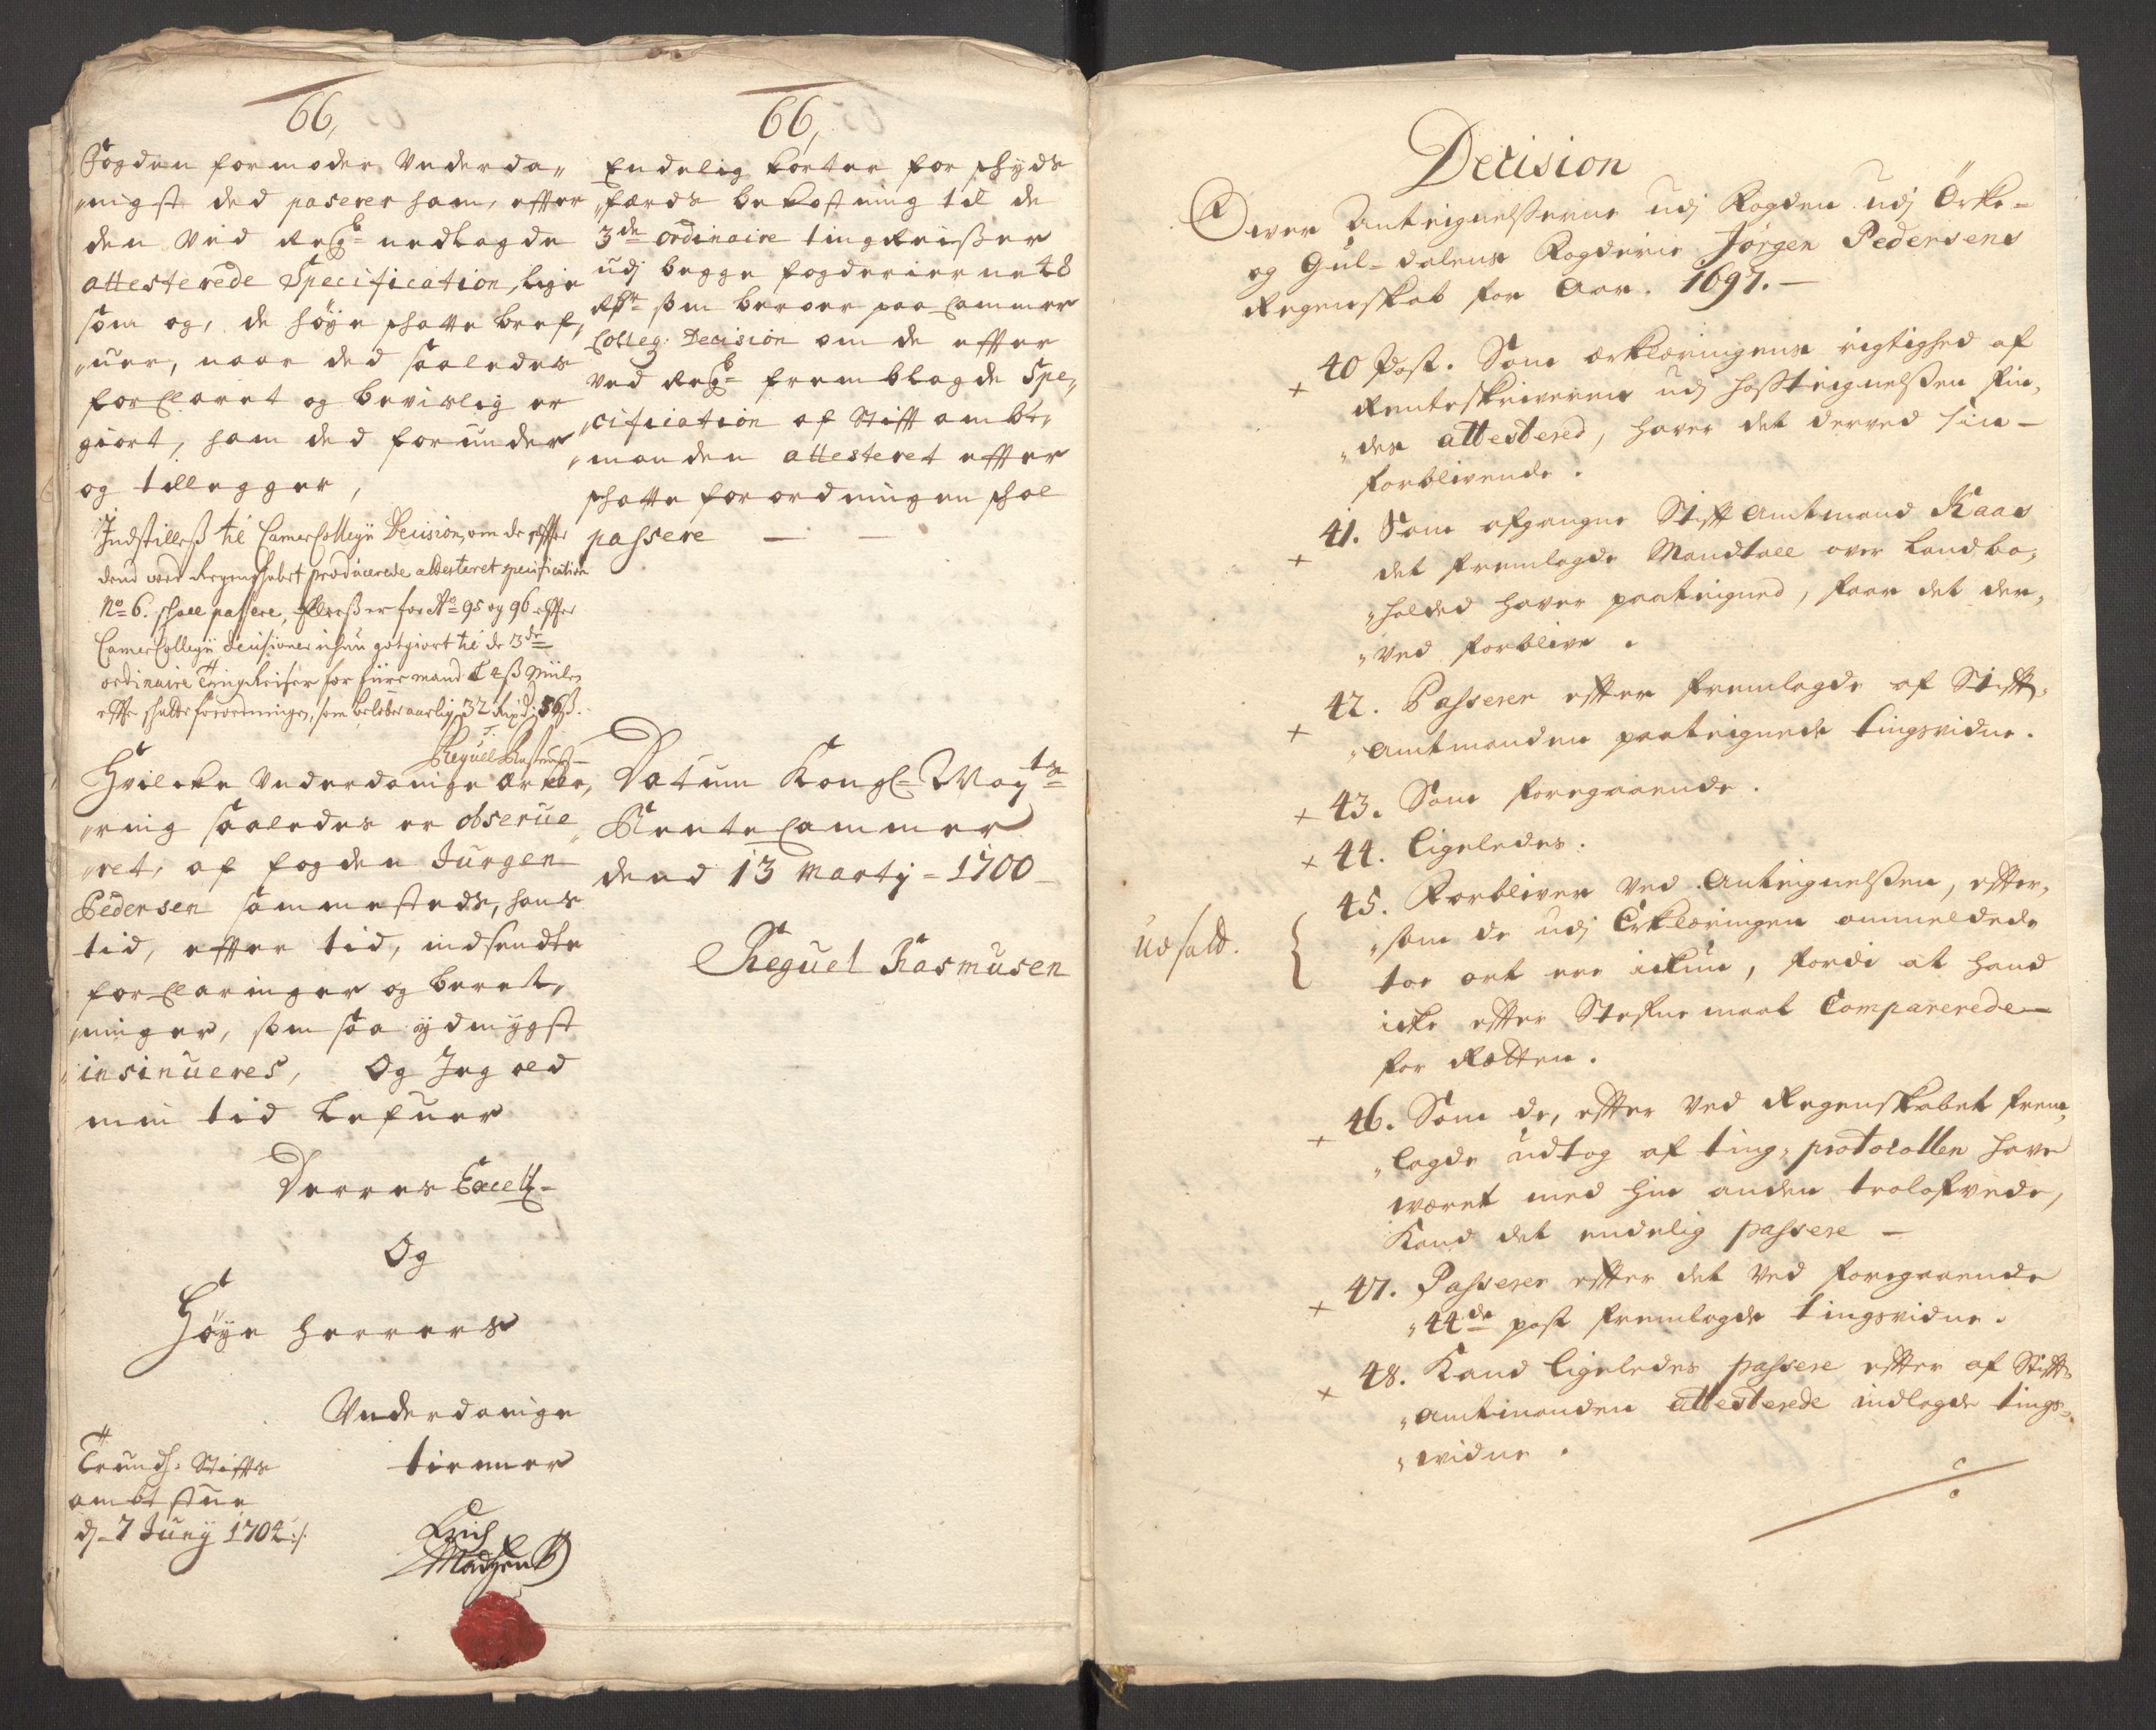 66,
Fogden formoder Underda„
„nigst ded paserer ham, effter
den Ved Regb nedlagde
attesterede Specification, lige
som og, de høye schatte bref„
„uer, naar ded saaledes
forclaret og bevislig er
giort, ham ded forunder
og tillegger,
Indstilless til CamerCollegii Decision, om de effter
dend ved Regenschabet producerede attesteret specification
No 6. schall passere, Ellers er for Ao 95 og 96 effter
CamerCollegii decisioner ichun gotgiort til de 3de
ordinaire Tingreiser for fiire mand
effter schatteforordningen, som beløber aarlig 32 Rixd: 36 ß.
Reguel Rasmusen
Hvilcke Underdanige ærkle„
„ring saaledes er obserue
„ret, af fogden Jurgen
Pedersen sammesteds, hans
tid, effter tid, indsendte
forclaringer og beret„
„ninger, som saa ydmygst
insinueres, Og Jeg ald
min tid Lefuer
Derres Excell
Og
Høye herrers
Underdanige
tienner
Trundh: Stiffts
ambtstue
d. 7 Juny 1702 :/:
Erich
Madzen
66,
Endelig borter for schyds
„færds bekostning til de
3de ordinaire tingreiser
udj begge fogderierne 48
Rdr som beroer paa Cammer
Colleg: Decision om de effter
ved Regb fremblagde Spe„
„cification af Stiftambt„
„manden attesteret effter
schatte forordningen schal
passere —
Datum Kongl. Mayts
Rente Cammer
dend 13 Marty = 1700
Reguel Rasmusen
Decision
Over Antegnelserne udj Fogden udj Örke-
og Gul-dalens Fogderie Jörgen Pedersens
Regenskab for Aar. 1697. —
+ 40 Post. Som erklæringens rigtighed af
Renteskriveren udj hosstegnelsen fin„
„des attestered, haver det derved sin -
forblivende.
+ 41. Som afgangne Stift Amtmand Kaas
det fremlagde Mandtall over Landbo„
„holded haver paategned, faar det der„
„ved forblive.
+ 42. Passerer efter fremlagde af Stift„
„Amtmanden paategnede tingsvidne.
+ 43. Som foregaaende.
+ 44. Ligeledes.
udsatt. { 45. Forbliver ved Antegnelsen, efter„
„som de udj Erklæringen anmeldede
tre ort ere ickun, fordi at hand
icke efter Stefnemaal Comparerede -
for Rætten.
+ 46. Som de, efter ved Regenskabet frem„
„lagde udtog af ting„protocollen have
været med hin anden trolofvede,
Kand det endelig passere —
+ 47. Passerer efter det ved foregaaende
„44de post fremlagde tingsvidne.
+ 48. Kand ligeledes passere efter af Stift„
„Amtmanden attesterede indlagde tings„
„vidne.